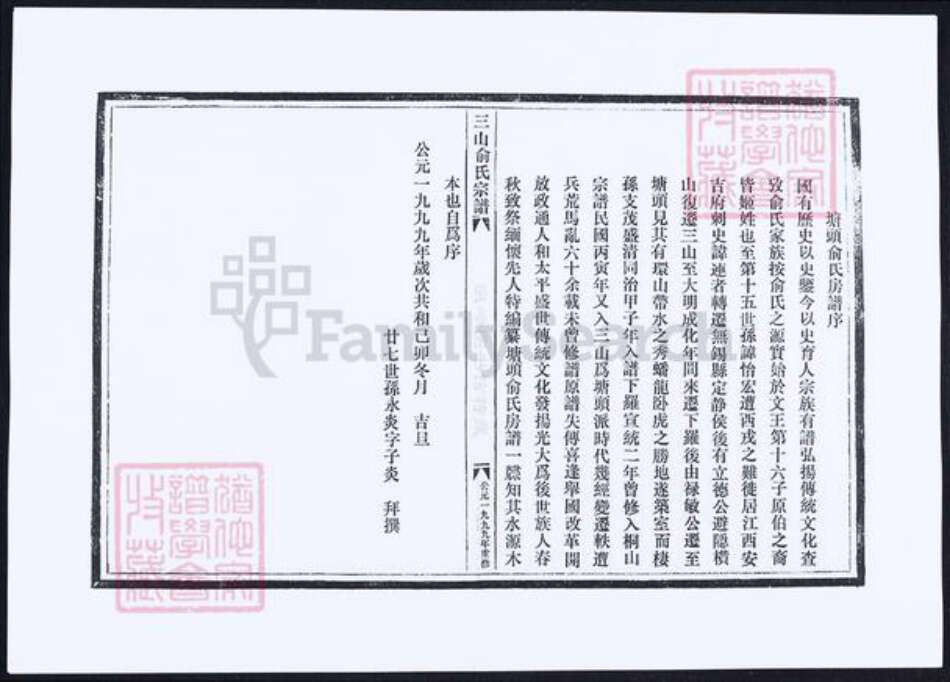 塘頭俞氏房譜序
國有歷史以史鑒今以史育人宗族有譜弘揚傳統文化查
攷俞氏家族按俞氏之源實始於文王第十六子原伯之裔
皆姬姓也至第十五世孫諱怡宏遭西戎之難徙居江西安
吉府刺史諱連者轉遷無錫縣定静侯後有立德公避隠橫
山復遷三山至大明成化年間來遷下羅後由禄敏公遷至
塘頭見其有環山帶水之秀蟠龍卧虎之勝地遂築室而棲
孫支茂盛清同治甲子年入譜下羅宣統二年曾修入桐山
宗譜民國丙寅年又入三山爲塘頭派時代幾經變遷軼遭
兵荒馬亂六十余載未曾修譜原譜失傳喜逢舉國改革開
放政通人和太平盛世傳統文化發揚光大爲後世族人春
秋致祭緬懷先人特編纂塘頭俞氏房譜一 知其水源木
三山俞氏宗譜
公元一九九九年重修
本也自爲序
公元一九九九年歲次共和己卯冬月 吉旦
廿七世孫永炎字子炎 拜撰
FamilySearch